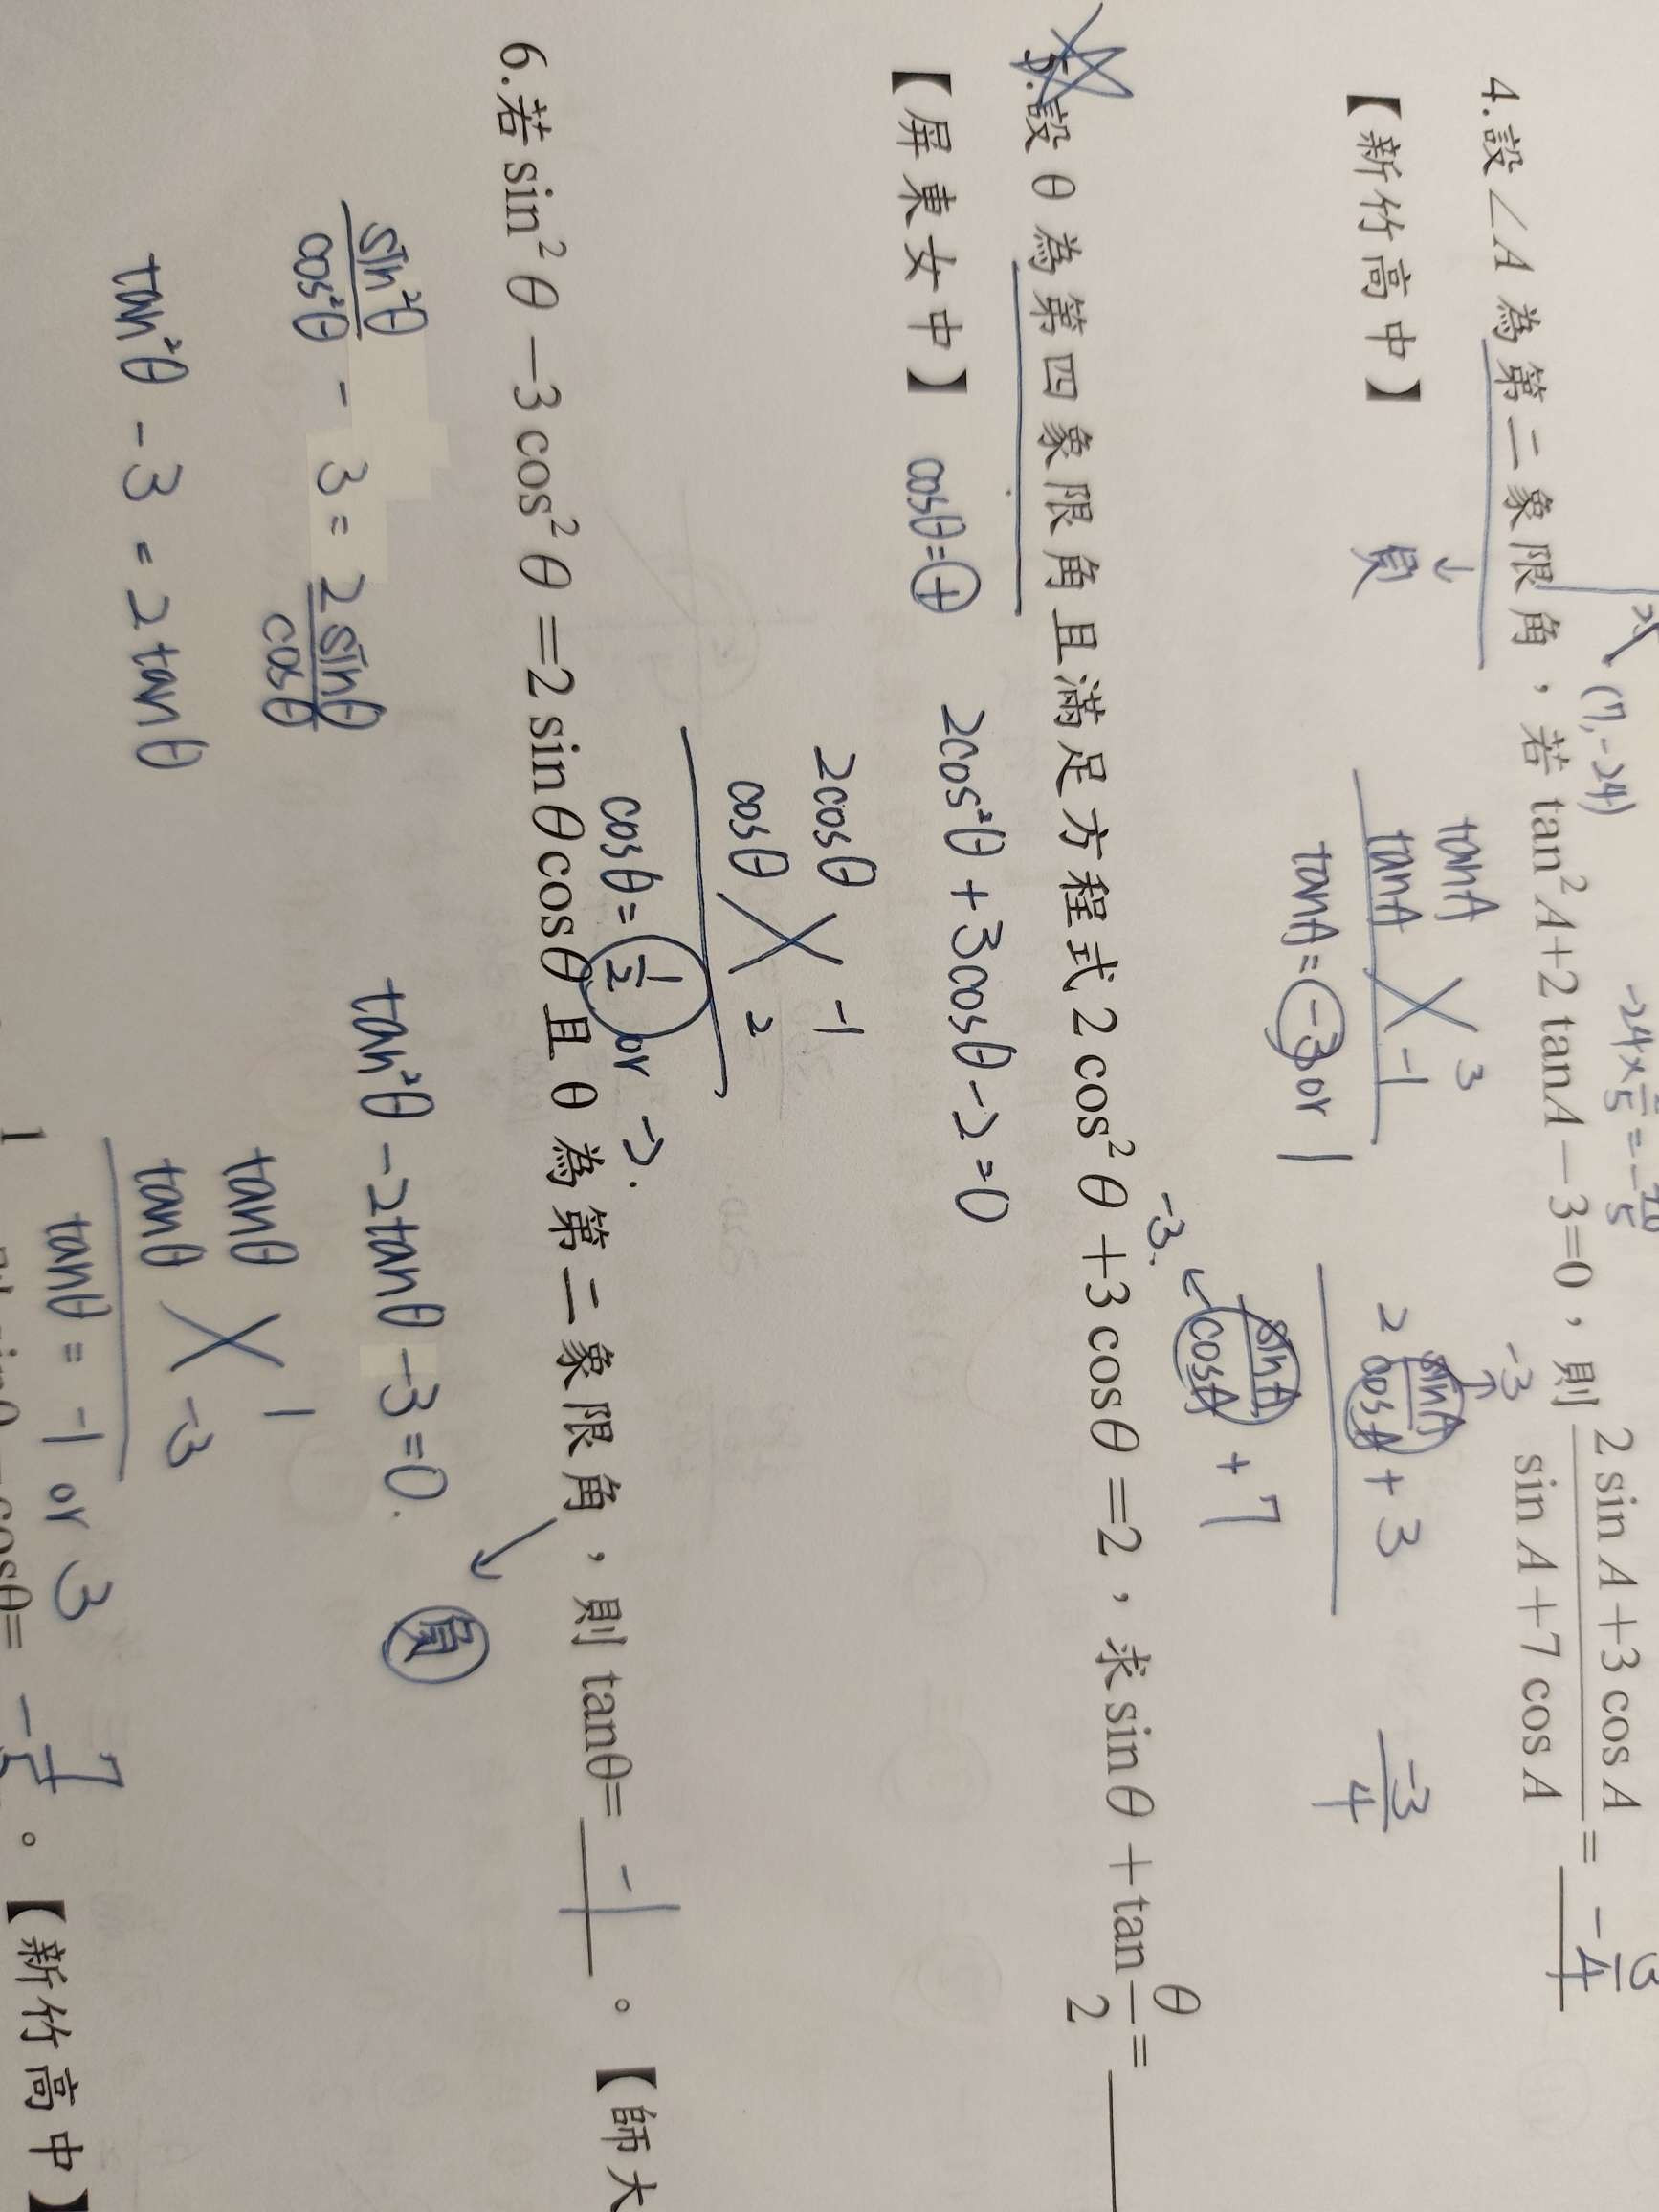 (7,-24)
4.設∠A 為第二象限角，若 tan²A+2tanA−3=0，則 (2sinA+3cosA)/(sinA+7cosA) = -3/4
【新竹高中】
↓
負
tanA 3
tanA -1
tanA = -3 or 1
-3
2 sinA/cosA + 3
sinA/cosA + 7
-3.
-3/4
5.設 θ 為第四象限角且滿足方程式 2cos²θ+3cosθ=2，求 sinθ+tan θ/2 =
【屏東女中】 cosθ=⊕
2cos²θ+3cosθ-2=0
2cosθ -1
cosθ 2
cosθ = 1/2 or -2.
6.若 sin²θ−3cos²θ=2sinθcosθ 且 θ 為第二象限角，則 tanθ= -1 。【師大
負
sin²θ/cos²θ - 3 = 2sinθ/cosθ
tan²θ - 3 = 2tanθ
tan²θ - 2tanθ - 3 = 0.
tanθ 1
tanθ -3
tanθ = -1 or 3
。【新竹高中】